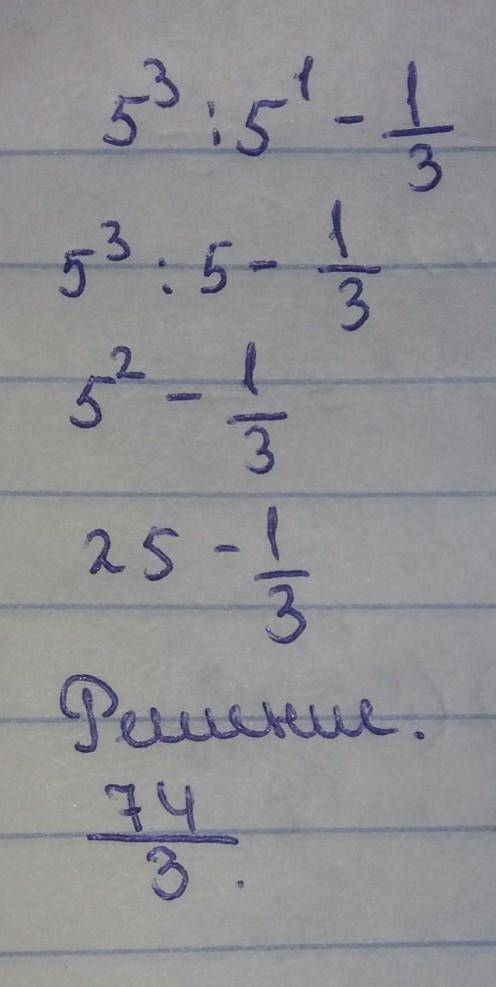 5³ : 5¹ - 1/3
5³ : 5 - 1/3
5² - 1/3
25 - 1/3
Решение.
74/3.